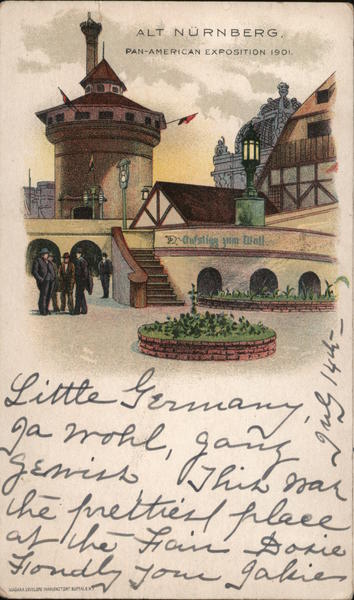 ALT NÜRNBERG.
PAN-AMERICAN EXPOSITION 1901.
Aufstieg zum Wall.
July 14th
Little Germany,
Ja wohl, ganz
gewish This was
the prettiest place
at the Fair Dosie
Fondly your Jakie
NIAGARA ENVELOPE MANUFACTORY, BUFFALO, N.Y.